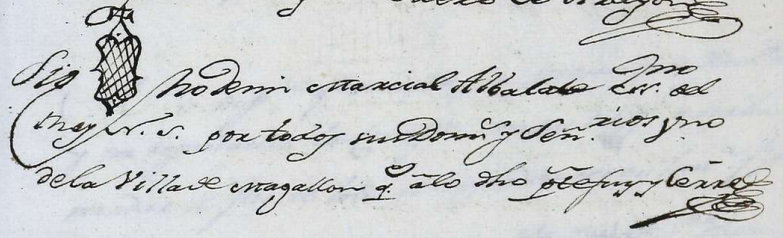 Sig no de mi Marcial Albalate Essno del
Rey N. S. por todos sus Domins y Señorios y no
de la Villa de Magallon q.e a lo dho pte fuy y Cerre